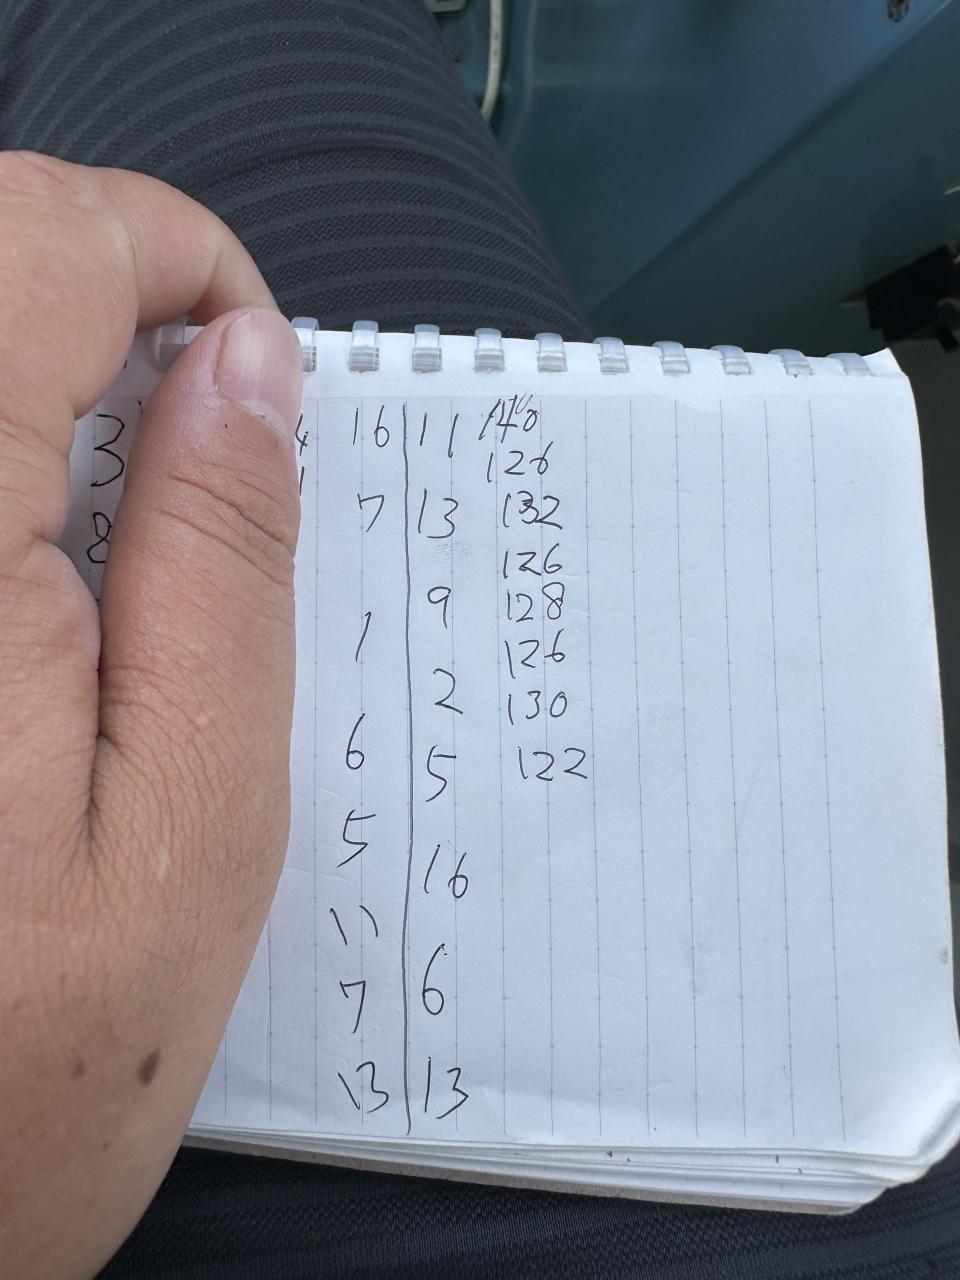 3 4 16 11 140
1 126
8 7 13 132
126
9 128
1 126
2 130
6 5 122
5
16
11
7 6
13 13